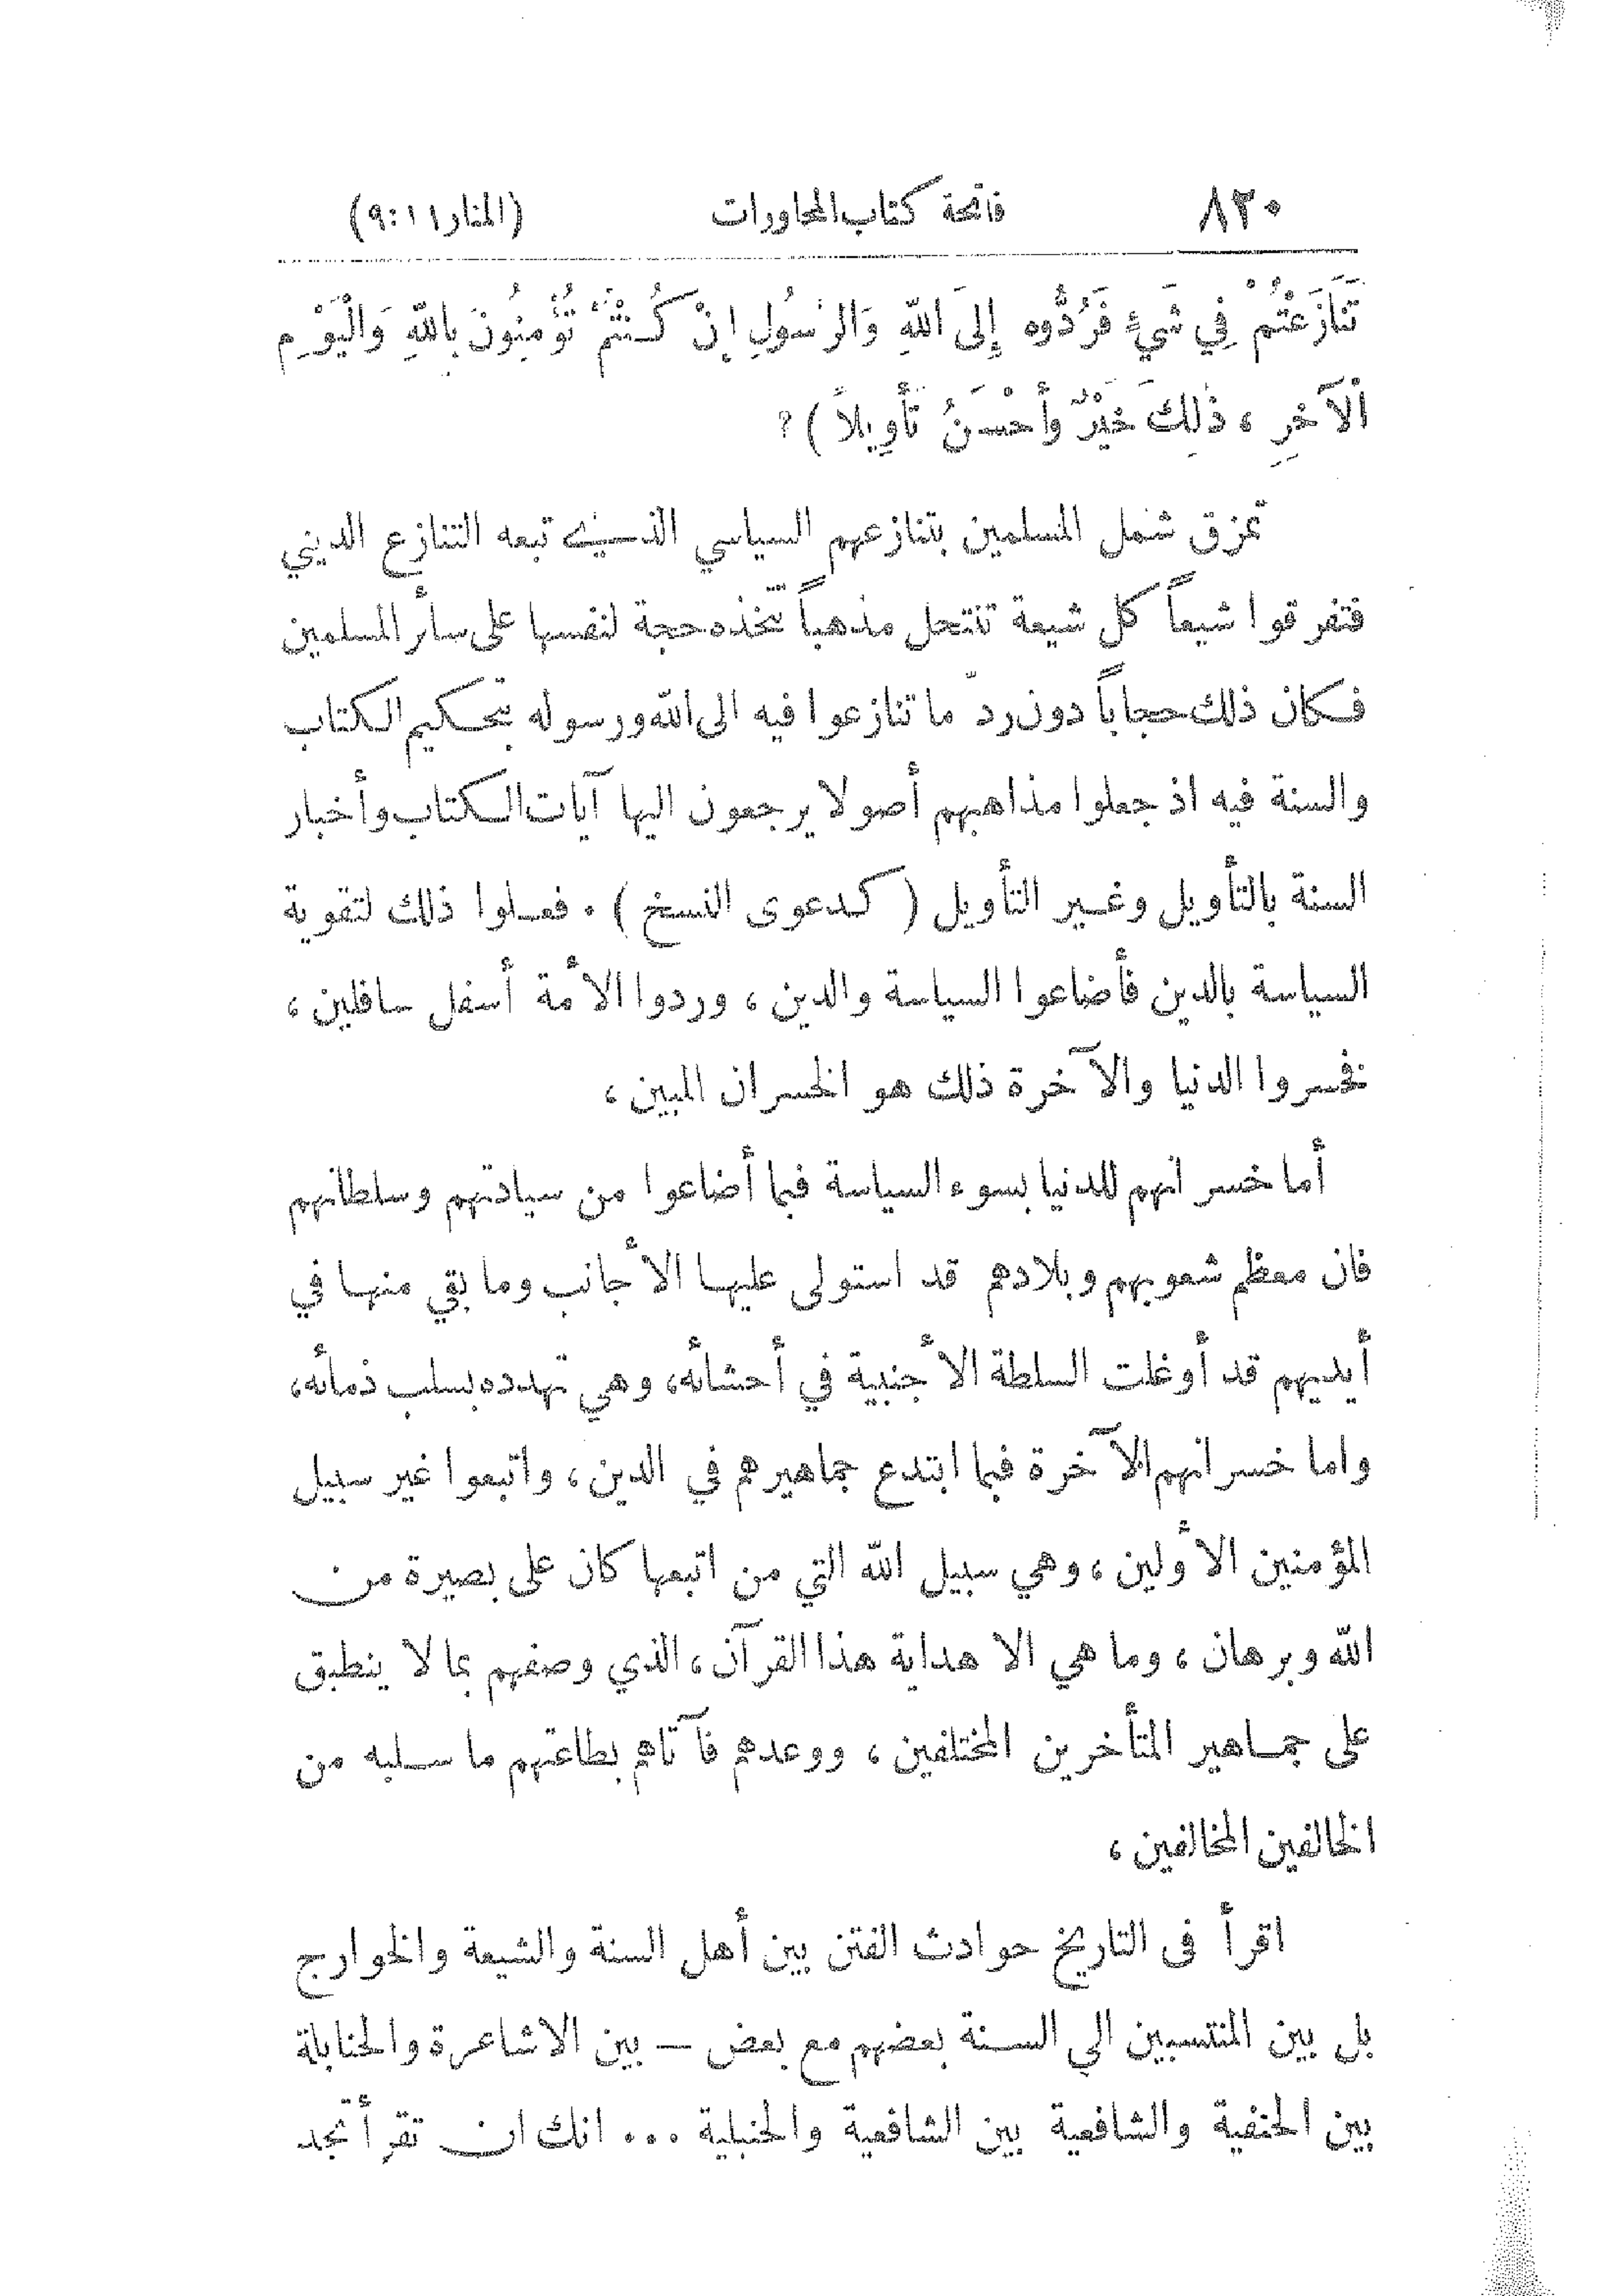 ٨٣٠ فاتحة كتاب المحاورات (المنار ١١:٩)
تَنَازَعْتُمْ فِي شَيْءٍ فَرُدُّوه إِلَى اللهِ وَالرَّسُولِ إِنْ كُنْتُمْ تُؤْمِنُونَ بِاللهِ وَالْيَوْمِ
الْآخَرِ ، ذٰلِكَ خَيْرٌ وأَحْسَنُ تَأْوِيلاً ) ؟
تمزق شمل المسلمين بتنازعهم السياسي الذي تبعه التنازع الديني
فتفرقوا شيعاً كل شيعة تنتحل مذهباً تتخذه حجة لنفسها على سائر المسلمين
فكان ذلك حجاباً دون ردّ ما تنازعوا فيه الى الله ورسوله بتحكيم الكتاب
والسنة فيه اذ جعلوا مذاهبهم أصولا يرجعون اليها آيات الكتاب وأخبار
السنة بالتأويل وغير التأويل ( كدعوى النسخ ) . فعلوا ذلك لتقوية
السياسة بالدين فأضاعوا السياسة والدين ، وردوا الأمة أسفل سافلين ،
فخسروا الدنيا والآخرة ذلك هو الخسران المبين ،
أما خسرانهم للدنيا بسوء السياسة فبما أضاعوا من سيادتهم وسلطانهم
فان معظم شعوبهم وبلادهم قد استولى عليها الأجانب وما بقي منها في
أيديهم قد أوغلت السلطة الأجنبية في أحشائه، وهي تهدده بسلب ذمائه،
واما خسرانهم الآخرة فبما ابتدع جماهيرهم في الدين ، واتبعوا غير سبيل
المؤمنين الأولين ، وهي سبيل الله التي من اتبعها كان على بصيرة من
الله وبرهان ، وما هي الا هداية هذا القرآن ، الذي وصفهم بما لا ينطبق
على جماهير المتأخرين المختلفين ، ووعدهم فآتاهم بطاعتهم ما سلبه من
الخالفين المخالفين ،
اقرأ فى التاريخ حوادث الفتن بين أهل السنة والشيعة والخوارج
بل بين المنتسبين الي السنة بعضهم مع بعض – بين الاشاعرة والحنابلة
بين الحنفية والشافعية بين الشافعية والحنبلية ... انك ان تقرأ تجد